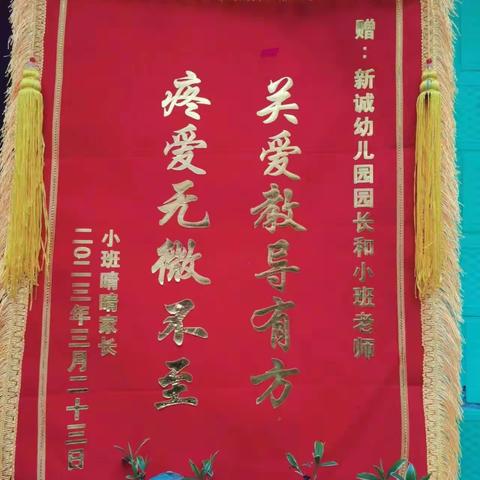 赠：新诚幼儿园园长和小班老师
关爱教导有方
疼爱无微不至
小班晴晴家长
二〇二三年三月二十三日